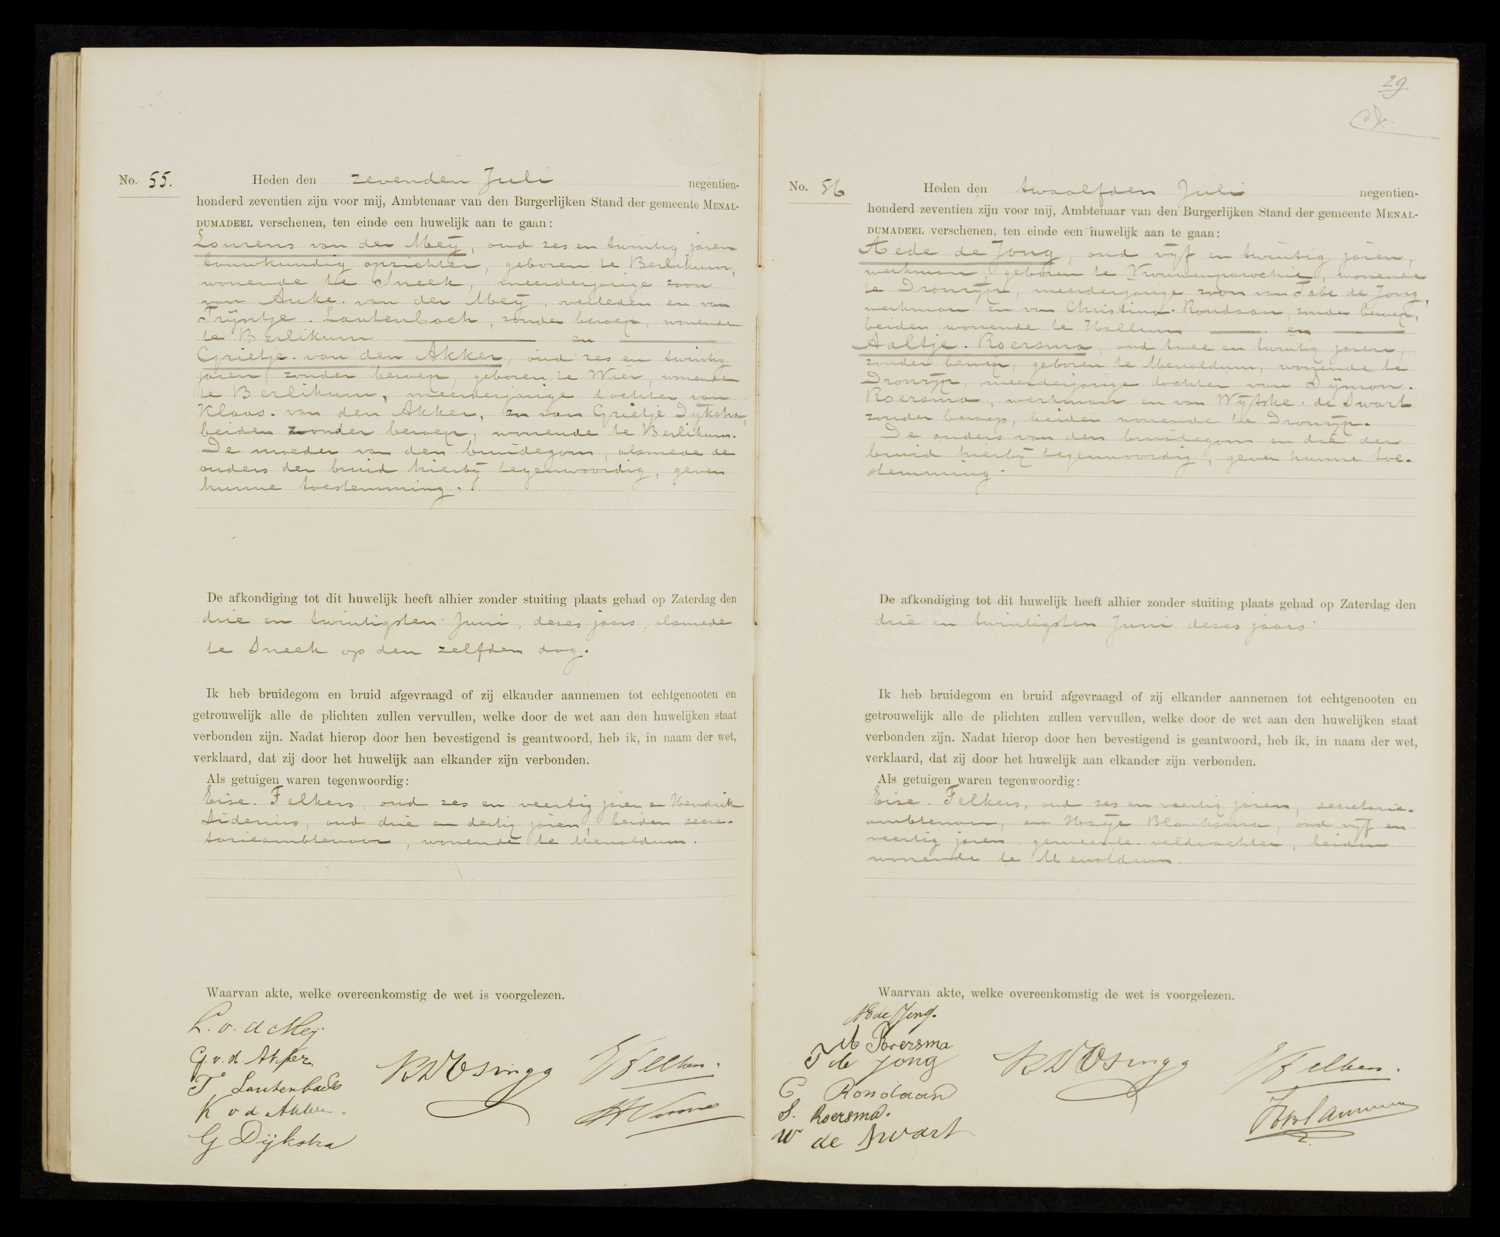 No. 55.
Heden den zevenden Juli negentien-
honderd zeventien zijn voor mij, Ambtenaar van den Burgerlijken Stand der gemeente MENAL-
DUMADEEL verschenen, ten einde een huwelijk aan te gaan:
Lourens van der Meij, oud zes en twintig jaren
bouwkundig opzichter, geboren te Berlikum,
wonende te Sneek, meerderjarige zoon
van Anke van der Meij, overleden en van
Trijntje Lautenbach, zonder beroep, wonende
te Berlikum en
Grietje van den Akker, oud zes en twintig
jaren, zonder beroep, geboren te Wier, wonende
te Berlikum, meerderjarige dochter van
Klaas van den Akker, en van Grietje Dijkstra,
beiden zonder beroep, wonende te Berlikum.
De moeder van den bruidegom, alsmede de
ouders der bruid hierbij tegenwoordig, geven
hunne toestemming.
De afkondiging tot dit huwelijk heeft alhier zonder stuiting plaats gehad op Zaterdag den
drie en twintigsten Juni, dezes jaars, alsmede
te Sneek op den zelfden dag.
Ik heb bruidegom en bruid afgevraagd of zij elkander aannemen tot echtgenooten en
getrouwelijk alle de plichten zullen vervullen, welke door de wet aan den huwelijken staat
verbonden zijn. Nadat hierop door hen bevestigend is geantwoord, heb ik, in naam der wet,
verklaard, dat zij door het huwelijk aan elkander zijn verbonden.
Als getuigen waren tegenwoordig:
Eise Felkers, oud zes en veertig jaren en Hendrik
oud drie en dertig jaren, beiden secre-
tarieambtenaar, wonende te Menaldum.
Waarvan akte, welke overeenkomstig de wet is voorgelezen.
L. v. d Meij
G v. d. Akker
T Lautenbach
K v d Akker.
G Dijkstra
KDOsinga
EFelkers.
29
No. 56
Heden den twaalfden Juli negentien-
honderd zeventien zijn voor mij, Ambtenaar van den Burgerlijken Stand der gemeente MENAL-
DUMADEEL verschenen, ten einde een huwelijk aan te gaan:
Aede de Jong, oud vijf en twintig jaren,
werkman, geboren te Vrouwenparochie, wonende
te Dronrijp, meerderjarige zoon van Tebe de Jong,
werkman en van Christina Rondaan, zonder beroep,
beiden wonende te Hallum en
Aaltje Roersma, oud twee en twintig jaren,
zonder beroep, geboren te Menaldum, wonende te
Dronrijp, meerderjarige dochter van Sijmon
Roersma, werkman en van Wijtske de Swart
zonder beroep, beiden wonende te Dronrijp.
De ouders van den bruidegom en die der
bruid hierbij tegenwoordig, geven hunne toe-
stemming.
De afkondiging tot dit huwelijk heeft alhier zonder stuiting plaats gehad op Zaterdag den
drie en twintigsten Juni dezes jaars.
Ik heb bruidegom en bruid afgevraagd of zij elkander aannemen tot echtgenooten en
getrouwelijk alle de plichten zullen vervullen, welke door de wet aan den huwelijken staat
verbonden zijn. Nadat hierop door hen bevestigend is geantwoord, heb ik, in naam der wet,
verklaard, dat zij door het huwelijk aan elkander zijn verbonden.
Als getuigen waren tegenwoordig:
Eise Felkers, oud zes en veertig jaren, secretarie-
ambtenaar, en Haije Blanksma, oud vijf en
veertig jaren gemeente-veldwachter, beiden
wonende te Menaldum.
Waarvan akte, welke overeenkomstig de wet is voorgelezen.
A de Jong.
A Roersma
T de Jong
C Rondaan
S. Roersma.
W de Swart
KDOsinga
EFelkers.